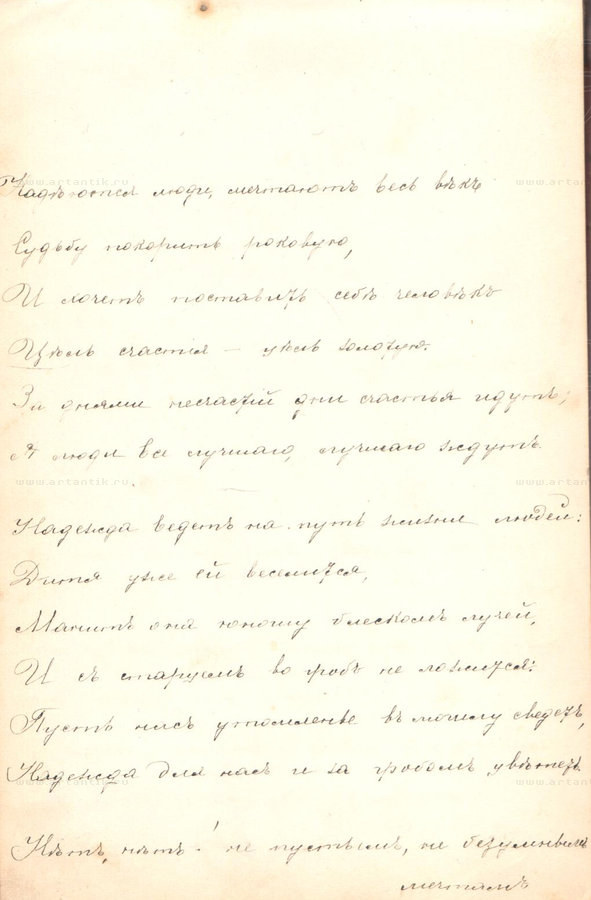 Надѣются люди, мечтаютъ весь вѣкъ
Судьбу покорить роковую,
И хочетъ поставить себѣ человѣкъ
Цѣль счастія – цѣль золотую.
За днями несчастій дни счастья идутъ;
А люди все лучшаго, лучшаго ждутъ.
Надежда ведетъ на путь жизни людей:
Дитя уже ей веселится,
Манитъ она юношу блескомъ лучей,
И съ старцемъ во гробъ не ложится:
Пусть насъ утомленье въ могилу сведетъ,
Надежда для насъ и за гробомъ цвѣтетъ.
Нѣтъ, нѣтъ! не пустымъ, не безумнымъ
мечтамъ
www.artantik.ru